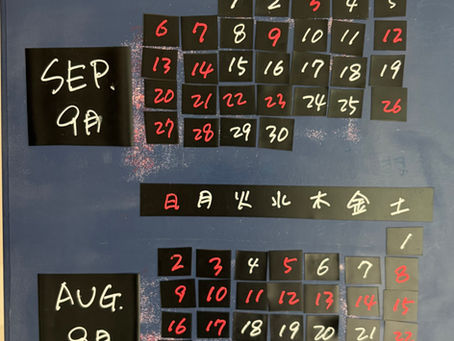 1 2 3 4 5
6 7 8 9 10 11 12
SEP.
13 14 15 16 17 18 19
9月
20 21 22 23 24 25 26
27 28 29 30
日 月 火 水 木 金 土
1
2 3 4 5 6 7 8
AUG.
9 10 11 12 13 14 15
16 17 18 19 20 21